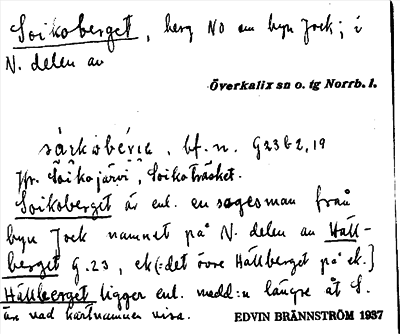 Soikoberget, berg NO om byn Jock; i
N. delen av
Överkalix sn o. tg Norrb. l.
bf. n. G23 b2, 19
Jfr. Soikojärvi, Soikoträsket.
Soikoberget är enl. en sagesman från
byn Jock namnet på N. delen av Häll-
berget G.23, ek (: det övre Hällberget på ek.)
Hällberget ligger enl. medd:n längre åt S.
än vad kartnamnen visa.
EDVIN BRÄNNSTRÖM 1937